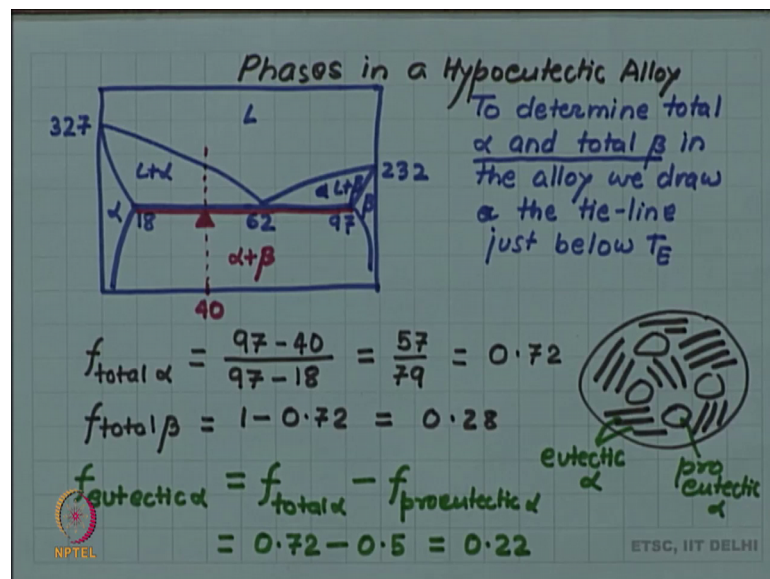 Phases in a Hypoeutectic Alloy
327
L
L+α
α
18
62
97
α L+β
β
232
α+β
40
To determine total
α and total β in
the alloy we draw
a the tie-line
just below T_E
f_total α = 97-40 / 97-18 = 57 / 79 = 0.72
f_total β = 1 - 0.72 = 0.28
f_eutectic α = f_total α - f_proeutectic α
= 0.72 - 0.5 = 0.22
eutectic
α
pro
eutectic
α
NPTEL
ETSC, IIT DELHI